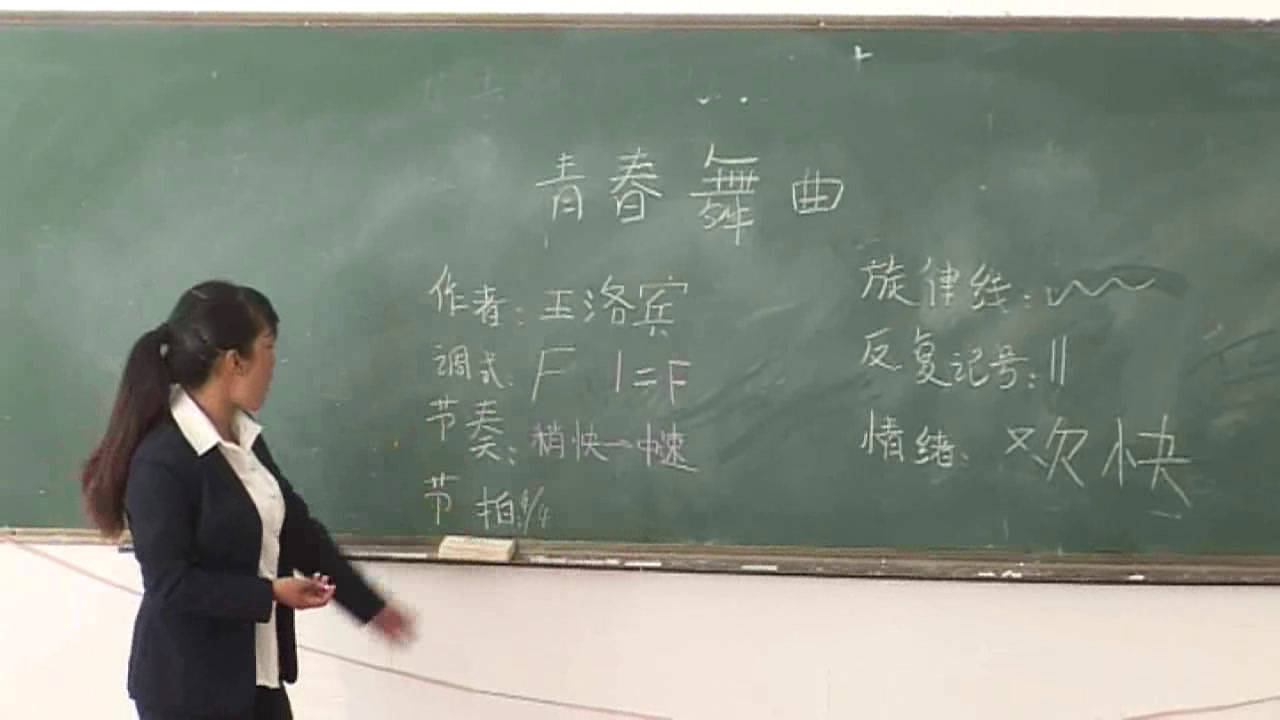 青春舞曲
作者：王洛宾
调式：F 1=F
节奏：稍快—中速
节拍：4/4
旋律线：
反复记号：‖
情绪：欢快